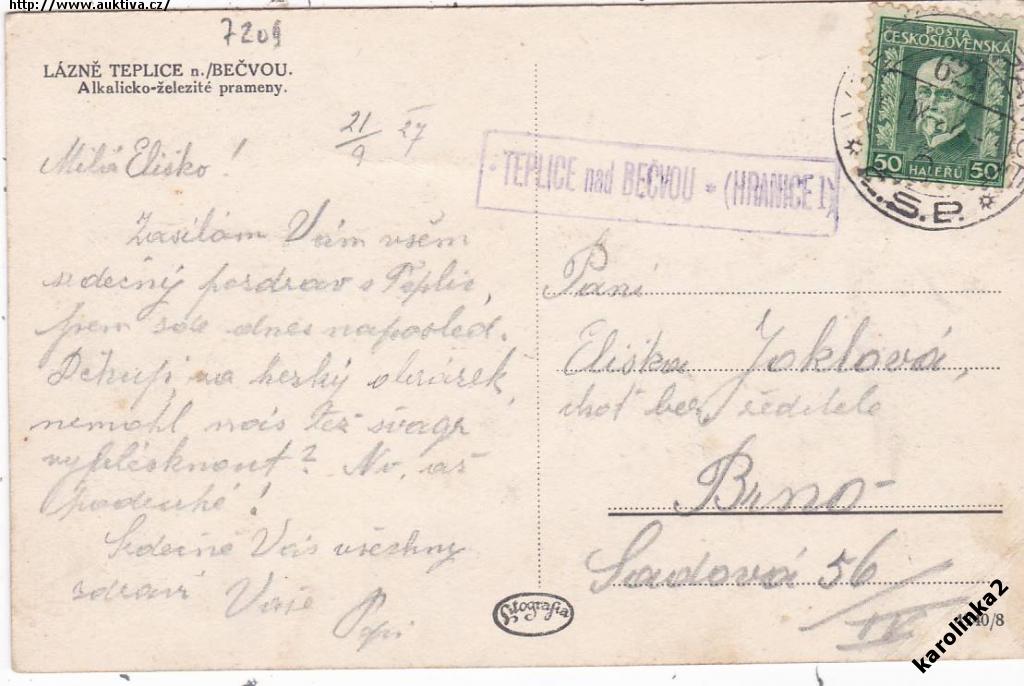 http://www.auktiva.cz/
7209
LÁZNĚ TEPLICE n./BEČVOU.
Alkalicko-železité prameny.
21/9 27
Milá Eliško!
Zasílám Vám všem
srdečný pozdrav z Teplic,
jsem zde dnes naposled.
Děkuji za hezký obrázek,
nemohl nás též švagr
vyplésknout? No, až
podruhé!
Srdečně Vás všechny
zdraví Vaše
Pepi
TEPLICE nad BEČVOU * (HRANICE 1)
POŠTA
ČESKOSLOVENSKÁ
50 HALÉŘŮ 50
Č.S.P.
Paní
Eliška Joklová,
choť ředitele
Brno
Sadová 56
IV
Grafia
40/8
karolinka2